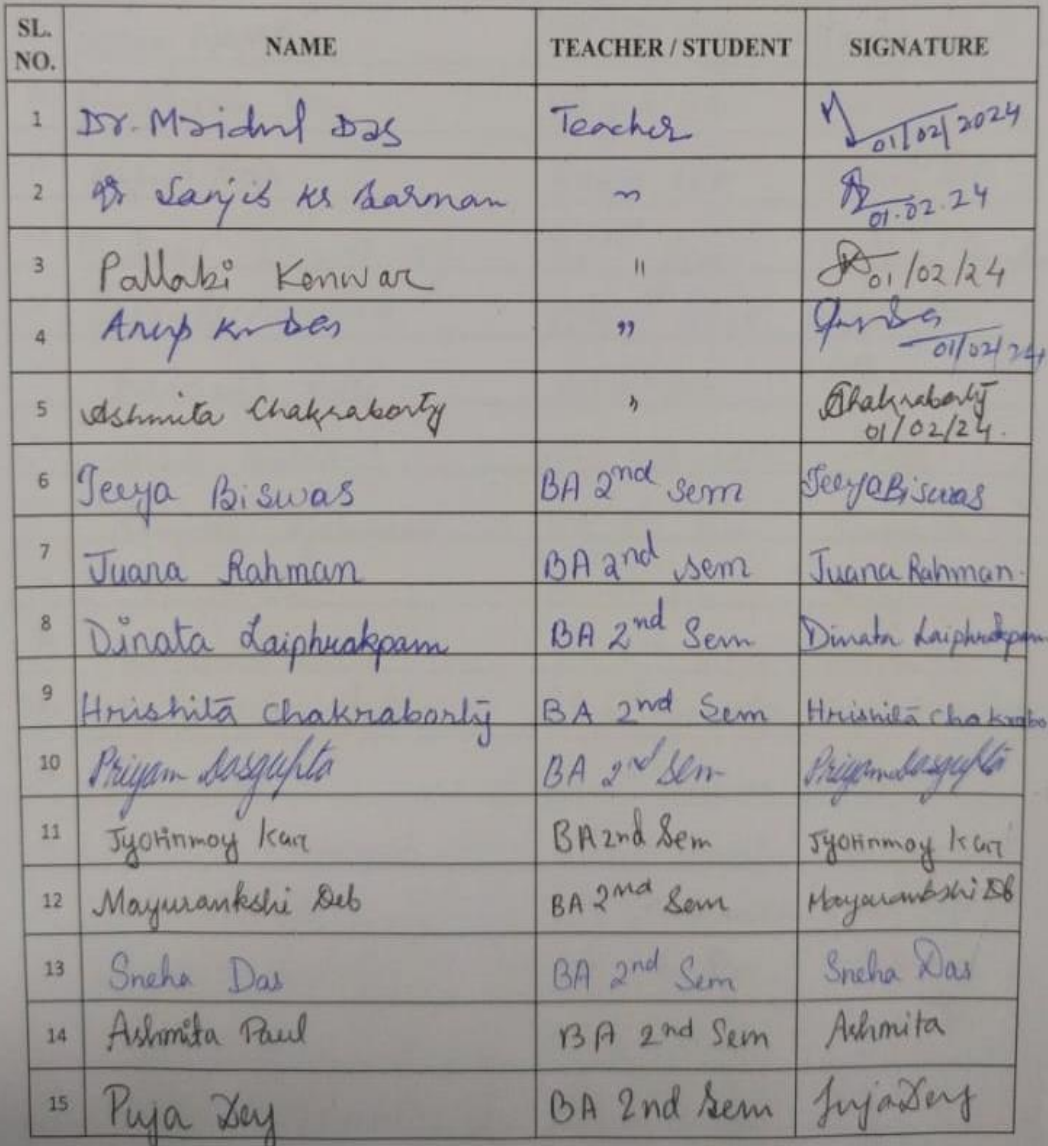 SL. NO. NAME TEACHER / STUDENT SIGNATURE
1 Dr. Mridul Das Teacher 01/02/2024
2 Dr Sanjib Kr Barman " 01.02.24
3 Pallabi Konwar " 01/02/24
4 Anup Kr Das " 01/02/24
5 Ashmita Chakraborty " Chakraborty 01/02/24.
6 Jeeya Biswas BA 2nd Sem Jeeya Biswas
7 Juana Rahman BA 2nd Sem Juana Rahman.
8 Dinata Laiphrakpam BA 2nd Sem Dinata Laiphrakpam
9 Hrishita Chakraborty BA 2nd Sem Hrishita Chakrabo
10 Priyam Dasgupta BA 2nd Sem Priyam Dasgupta
11 Jyotinmoy Kar BA 2nd Sem Jyotinmoy Kar
12 Mayurankshi Deb BA 2nd Sem Mayurankshi Db
13 Sneha Das BA 2nd Sem Sneha Das
14 Ashmita Paul BA 2nd Sem Ashmita
15 Puja Dey BA 2nd Sem Puja Dey